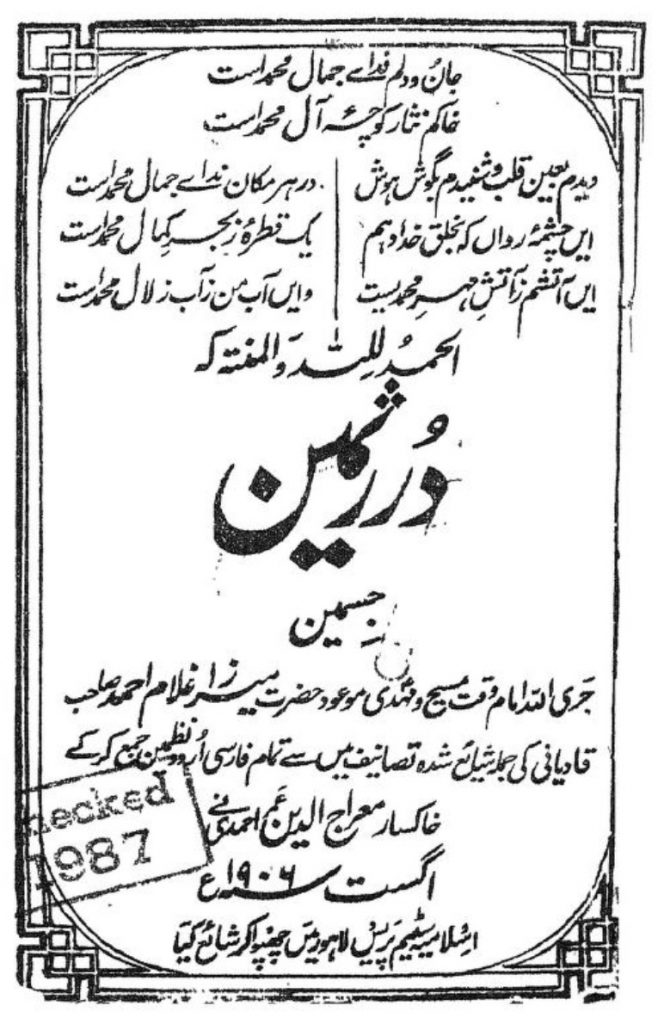 جان و دلم فدائے جمال محمد است
خاکم نثار کوچہء آل محمد است
دیدم بعین قلب و شنیدم بگوش ہوش در ہر مکان ندائے جمال محمد است
ایں چشمۂ رواں کہ بخلق خدا دہم یک قطرۂ ز بحر کمال محمد است
ایں آتشم ز آتش مہر محمدیست وایں آب من ز آب زلال محمد است
الحمد للہ والمنتہ کہ
دُرر ثمین
جسمین
جری اللہ امام وقت مسیح و مہدی موعود حضرت میرزا غلام احمد صاحب
قادیانی کی جملہ شائع شدہ تصانیف میں سے تمام فارسی اُردو نظمین جمع کر کے
خاکسار معراج الدین عمر احمدی نے
اگست سنہ ۱۹۰۶ء
اسلامیہ سٹیم پریس لاہور میں چھپوا کر شائع کیا
hecked
1987